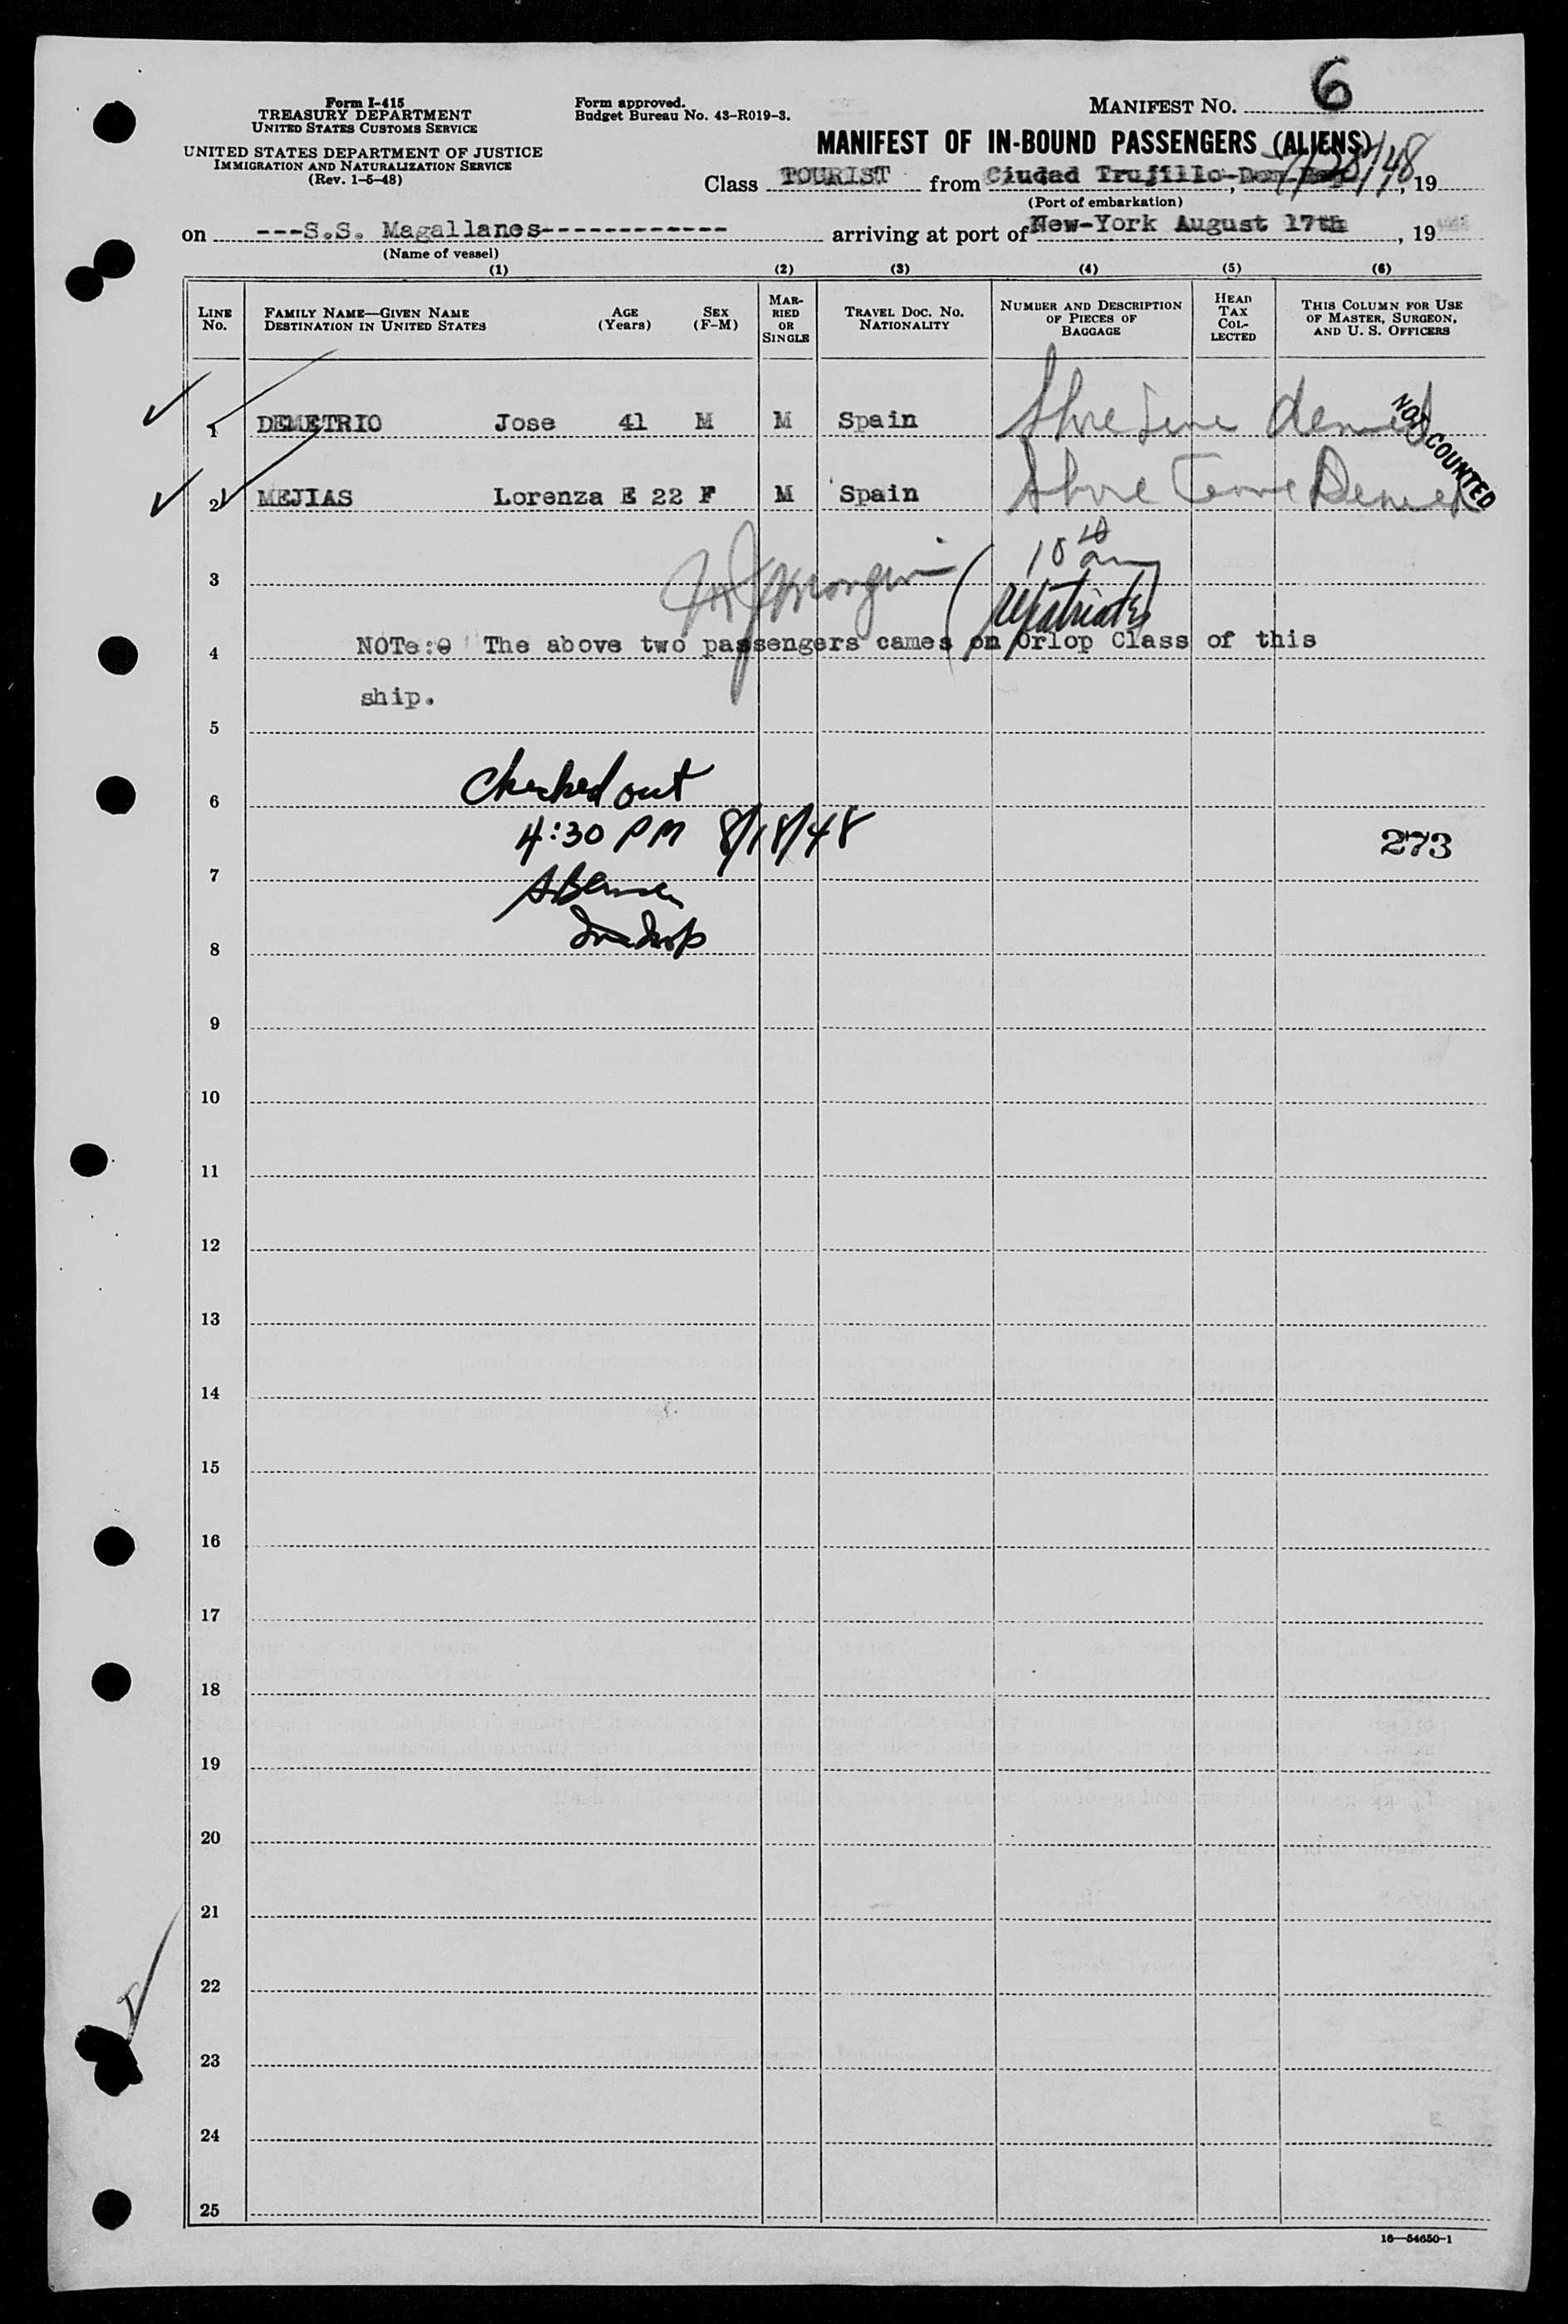 Form I-415
TREASURY DEPARTMENT
UNITED STATES CUSTOMS SERVICE
UNITED STATES DEPARTMENT OF JUSTICE
IMMIGRATION AND NATURALIZATION SERVICE
(Rev. 1-5-48)
Form approved.
Budget Bureau No. 43-R019-3.
MANIFEST NO. 6
MANIFEST OF IN-BOUND PASSENGERS (ALIENS)
Class TOURIST from Ciudad Trujillo-Dom. Rep. 7/28/48, 19
(Port of embarkation)
on ---S.S. Magallanes------------ arriving at port of New-York August 17th, 19
(Name of vessel)
(1) (2) (3) (4) (5) (6)
LINE No. FAMILY NAME—GIVEN NAME DESTINATION IN UNITED STATES AGE (Years) SEX (F-M) MARRIED OR SINGLE TRAVEL DOC. NO. NATIONALITY NUMBER AND DESCRIPTION OF PIECES OF BAGGAGE HEAD TAX COLLECTED THIS COLUMN FOR USE OF MASTER, SURGEON, AND U. S. OFFICERS
1 DEMETRIO Jose 41 M M Spain Shore Leave denied
NOT COUNTED
2 MEJIAS Lorenza E 22 F M Spain Shore Leave Denied
3 10 am
(repatriates)
4 NOTe: The above two passengers cames on Orlop Class of this
ship.
5
Checked out
6
4:30 PM 8/18/48 273
7
8
9
10
11
12
13
14
15
16
17
18
19
20
21
22
23
24
25
16—54650-1